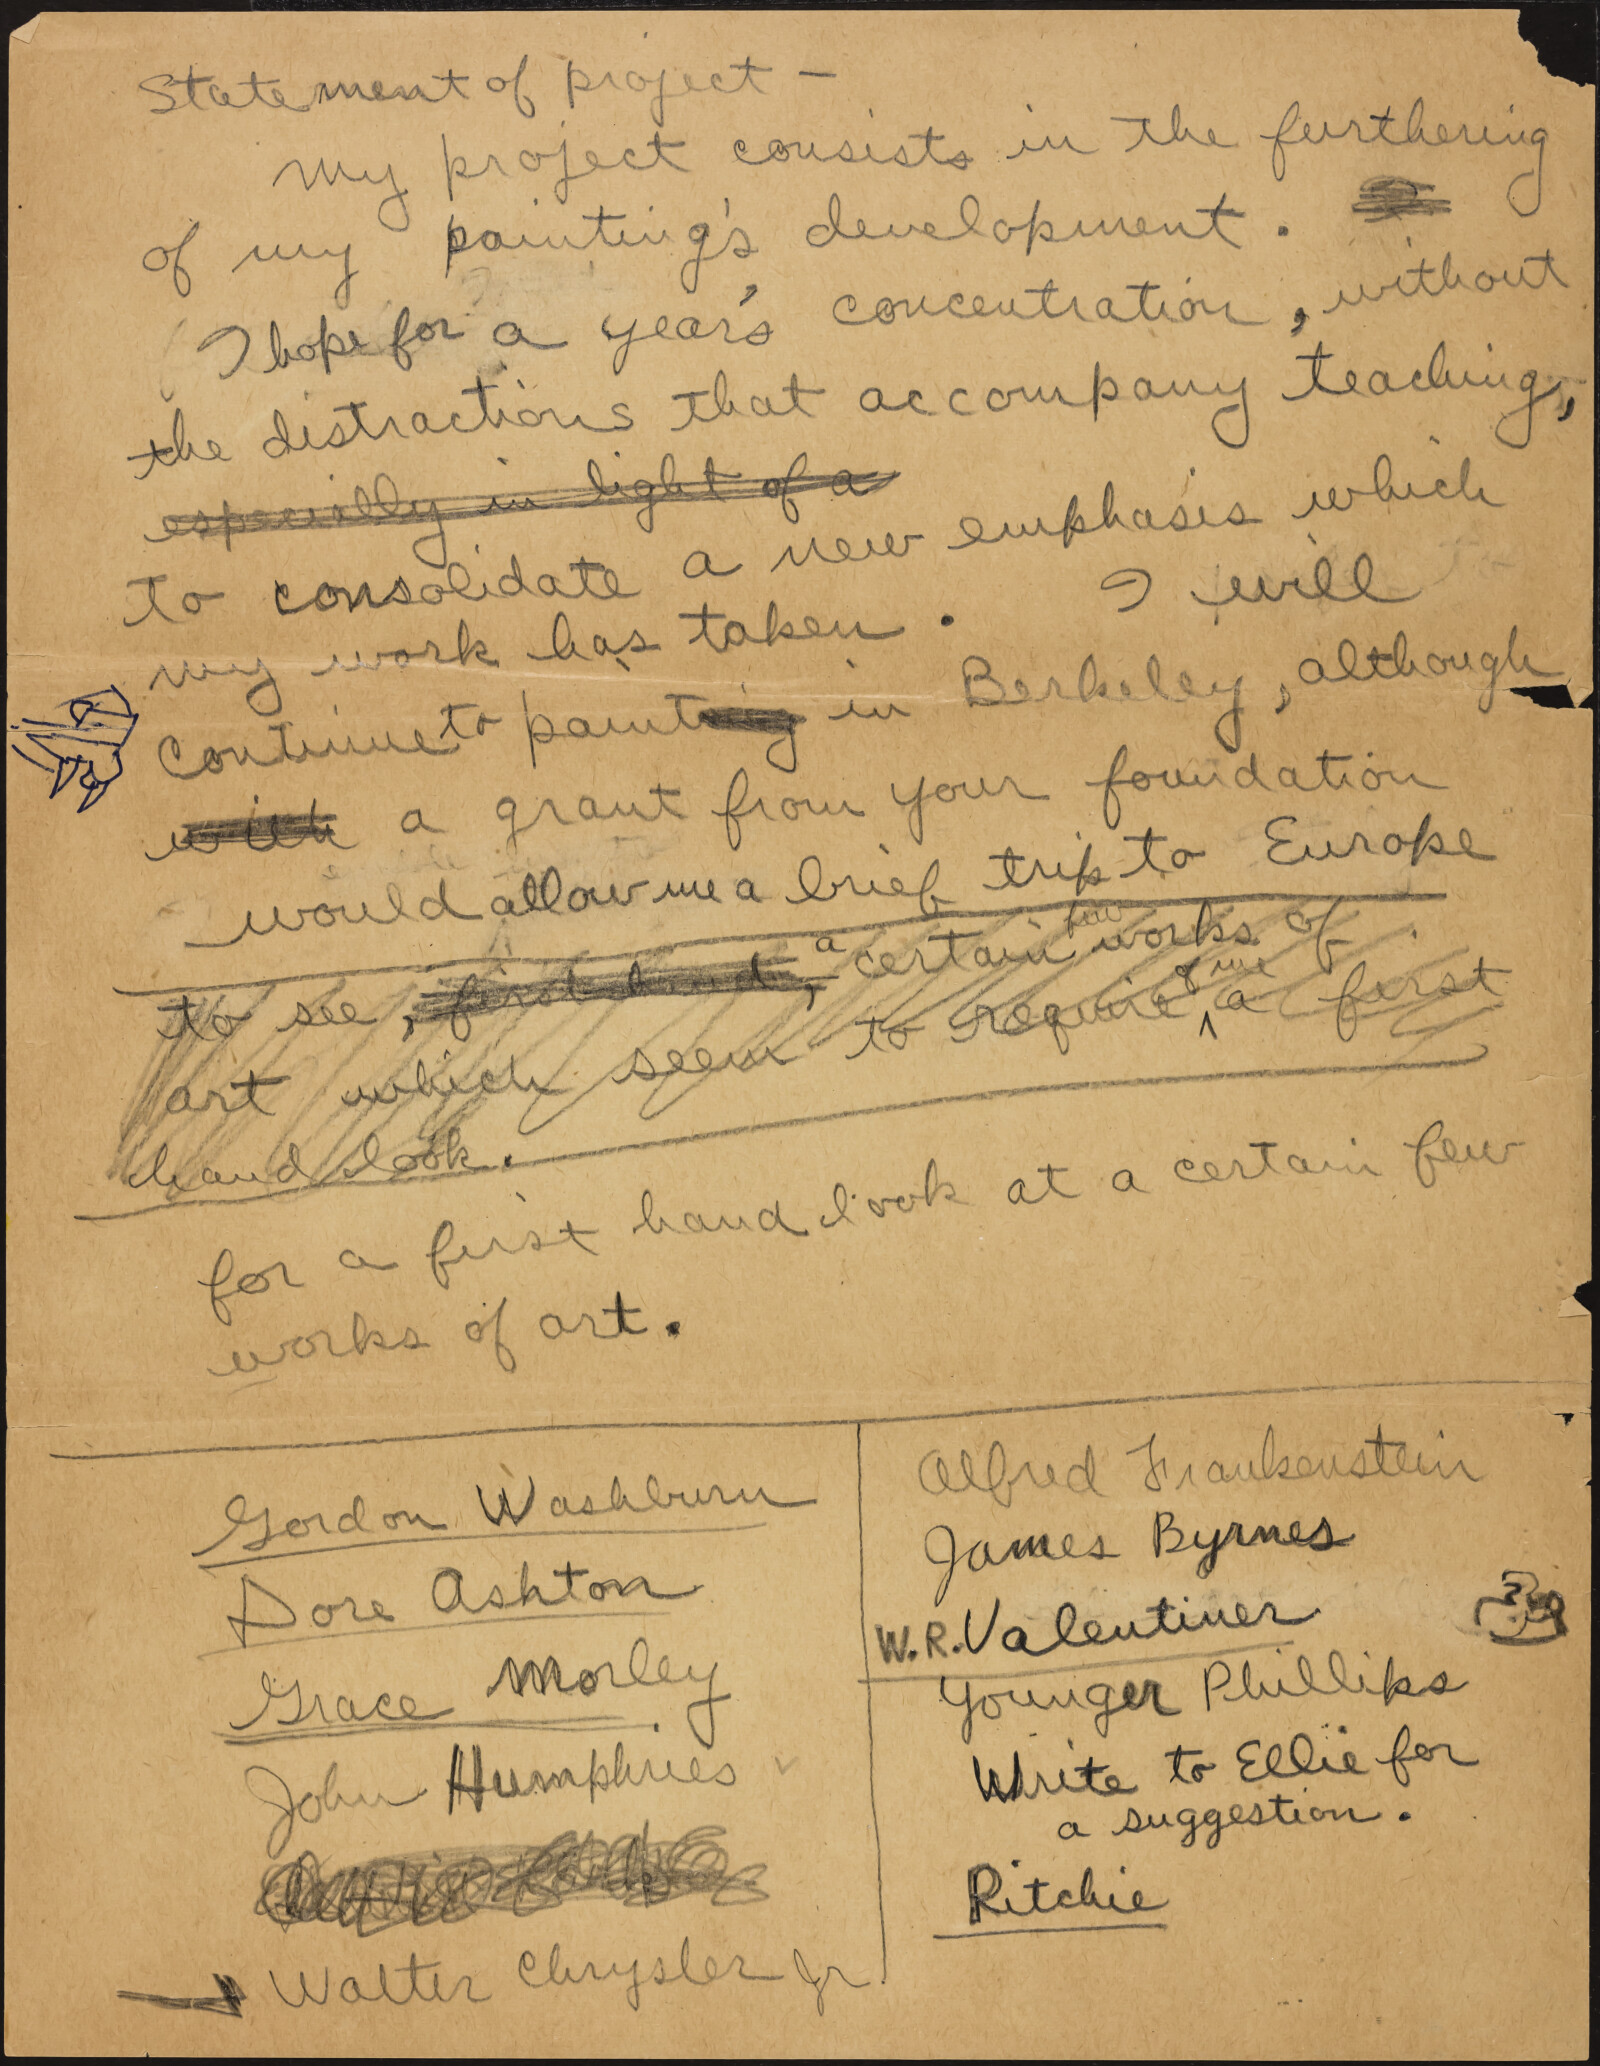 Statement of project —
My project consists in the furthering
of my painting's development.
I hope for a year's concentration, without
the distractions that accompany teaching,
especially in light of a
to consolidate a new emphasis which
my work has taken. I will
continue to painting in Berkeley, although
with a grant from your foundation
would allow me a brief trip to Europe
to see, first hand, a certain few works of
art which seem to require of me a first
hand look.
for a first hand look at a certain few
works of art.
Gordon Washburn
Dore Ashton
Grace Morley
John Humphries
Walter Chrysler Jr
Alfred Frankenstein
James Byrnes
W.R. Valentiner
Younger Phillips
Write to Ellie for
a suggestion.
Ritchie